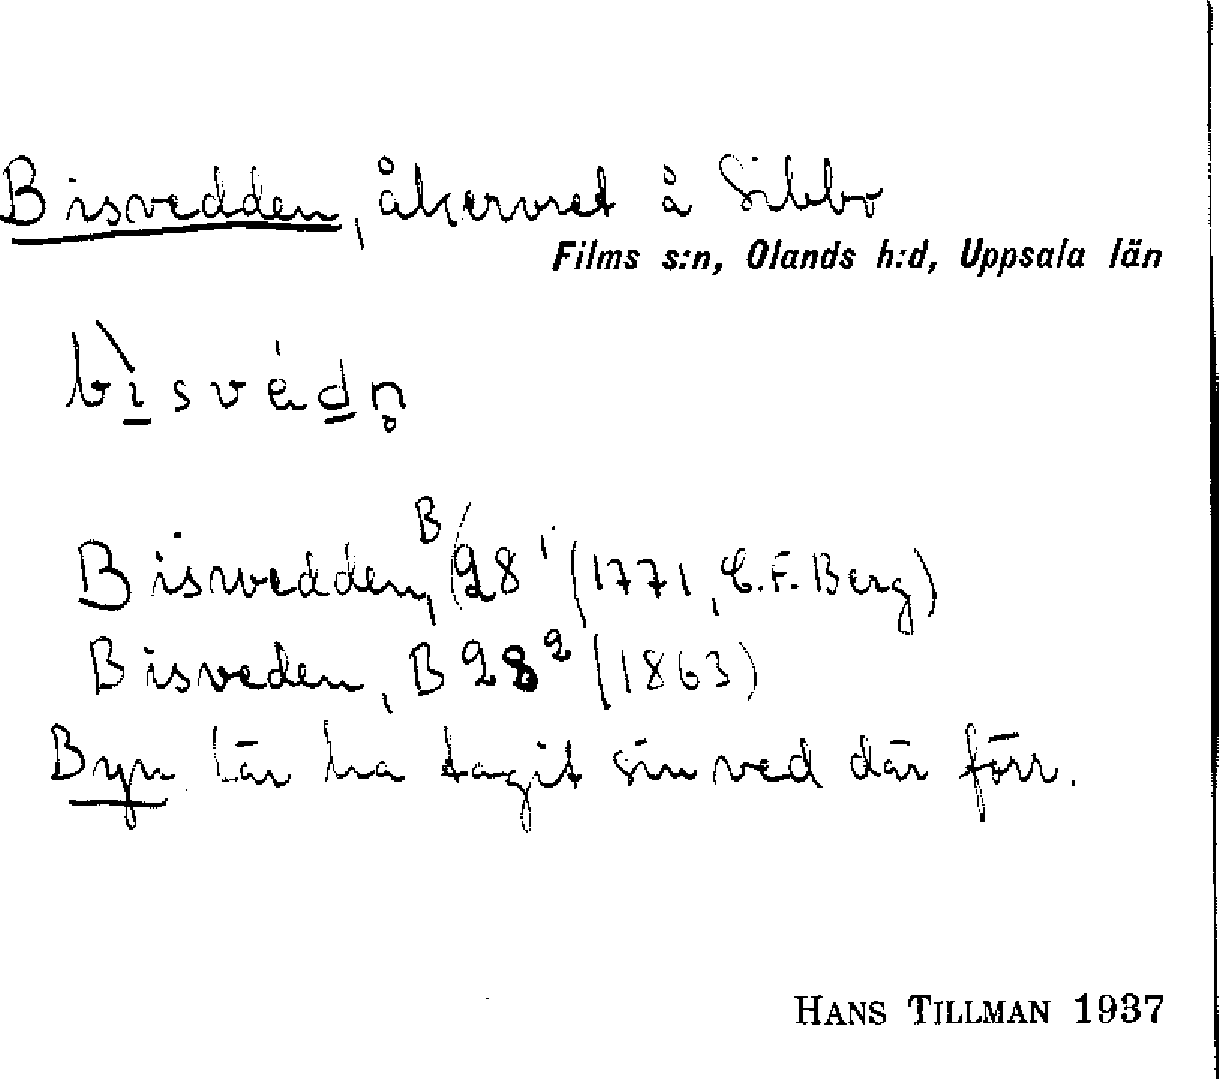 Bisvedden, åkervret å Sibbo
Films s:n, Olands h:d, Uppsala län
bìsvédn̥
Bisvedden, B 28¹ (1771, C.F. Berg)
Bisveden, B 28² (1863)
Byn lär ha tagit sin ved där förr.
HANS TILLMAN 1937